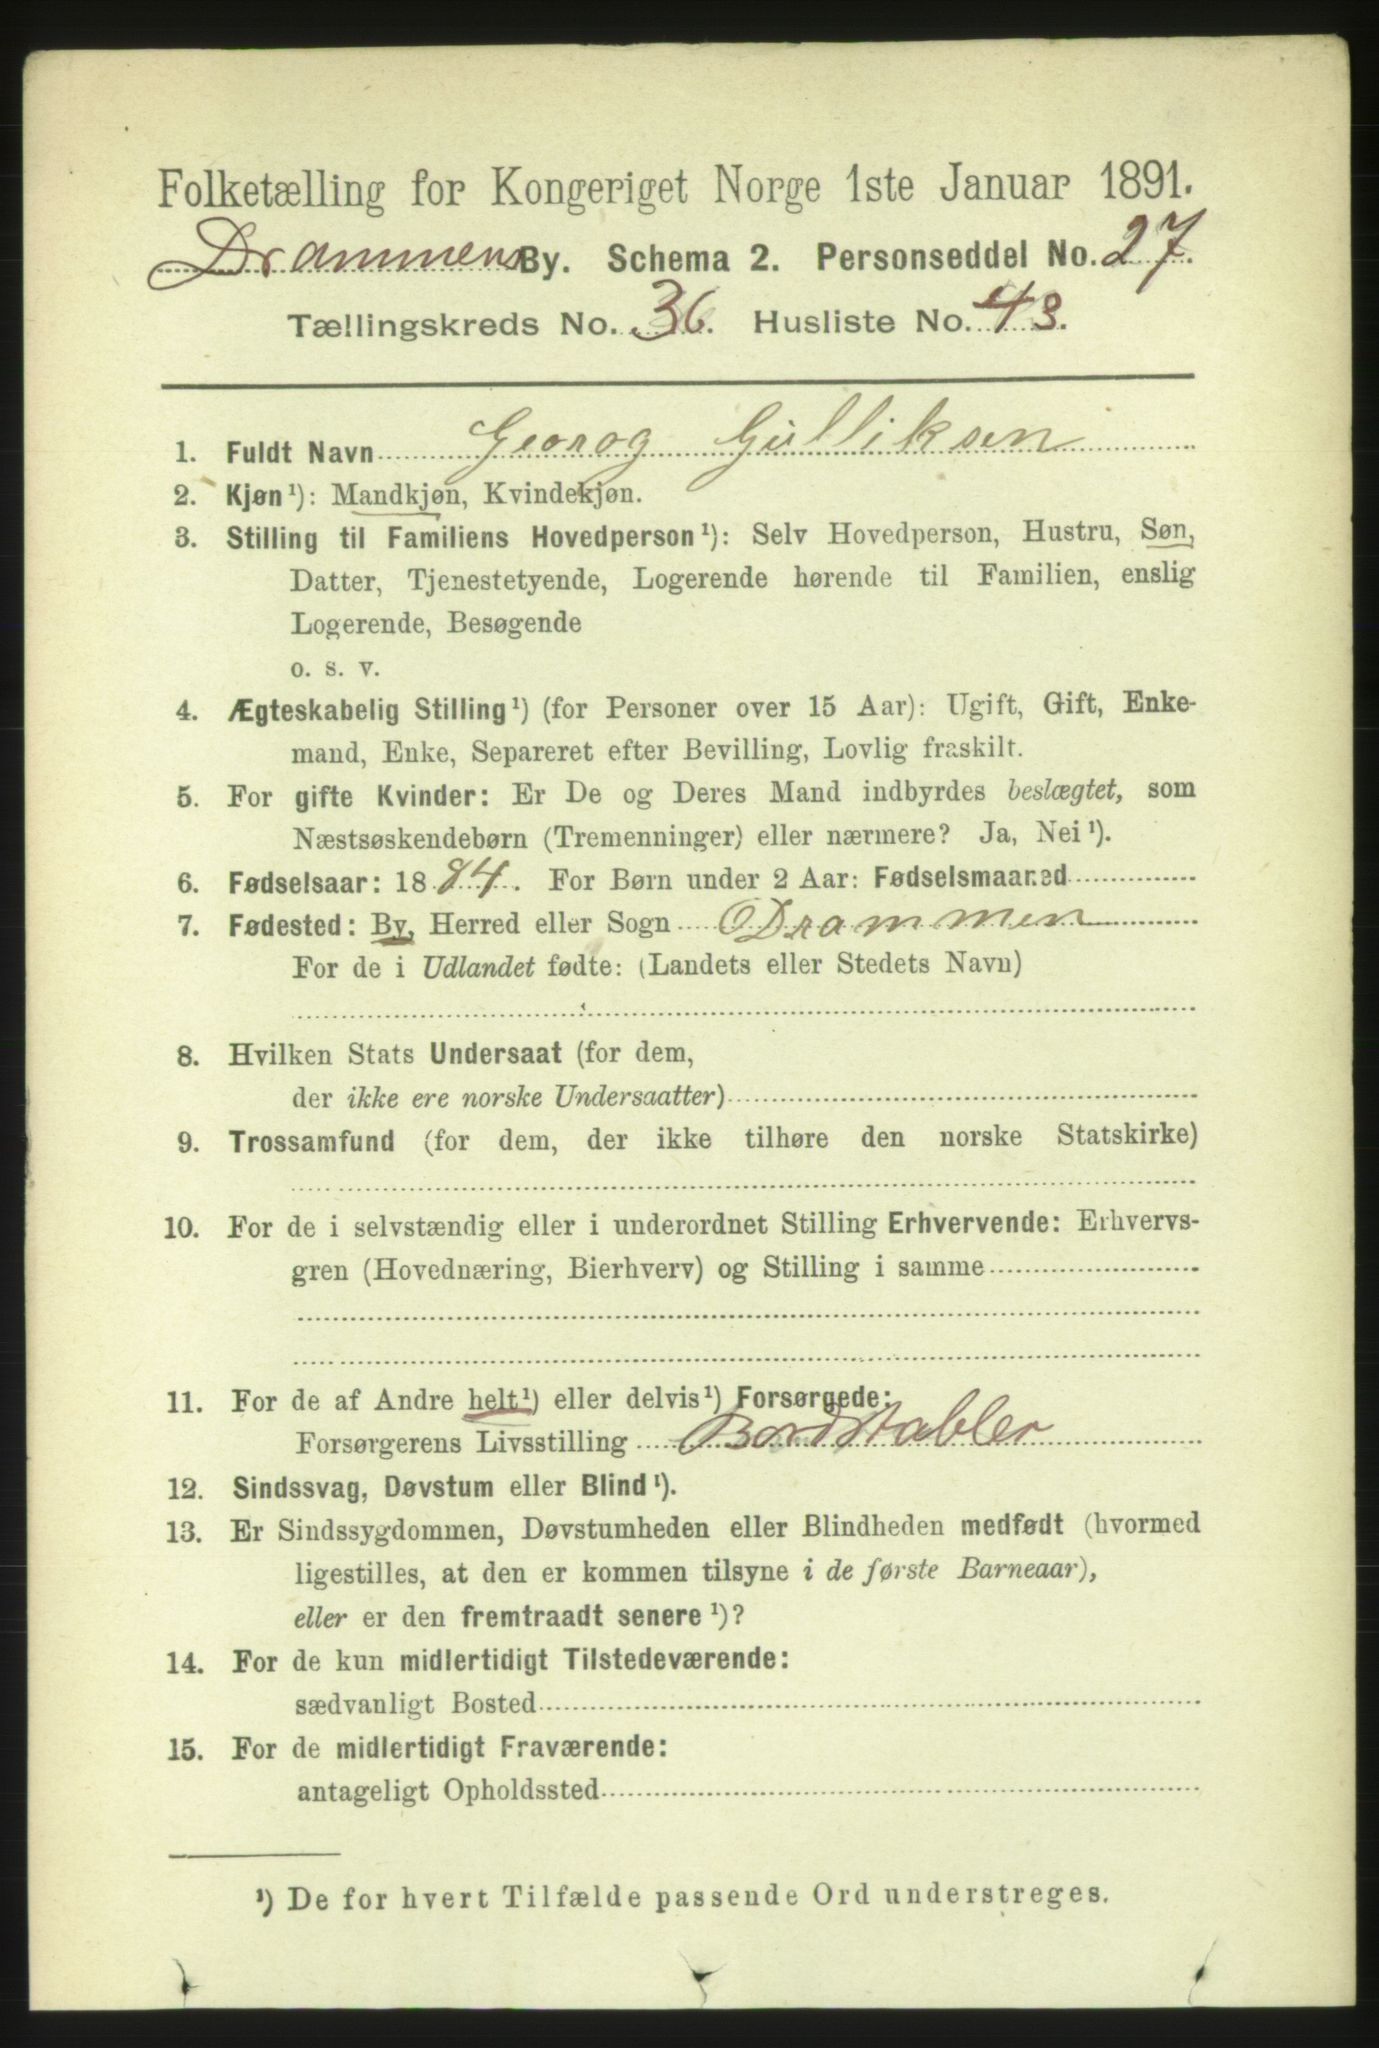 Folketælling for Kongeriget Norge 1ste Januar 1891.
Drammens By. Schema 2. Personseddel No. 27.
Tællingskreds No. 36. Husliste No. 43.
1. Fuldt Navn Georog Gulliksen
2. Kjøn¹): Mandkjøn, Kvindekjøn.
3. Stilling til Familiens Hovedperson¹): Selv Hovedperson, Hustru, Søn,
Datter, Tjenestetyende, Logerende hørende til Familien, enslig
Logerende, Besøgende
o. s. v.
4. Ægteskabelig Stilling¹) (for Personer over 15 Aar): Ugift, Gift, Enke-
mand, Enke, Separeret efter Bevilling, Lovlig fraskilt.
5. For gifte Kvinder: Er De og Deres Mand indbyrdes beslægtet, som
Næstsøskendebørn (Tremenninger) eller nærmere? Ja, Nei¹).
6. Fødselsaar: 1884. For Børn under 2 Aar: Fødselsmaaned
7. Fødested: By, Herred eller Sogn Drammen
For de i Udlandet fødte: (Landets eller Stedets Navn)
8. Hvilken Stats Undersaat (for dem,
der ikke ere norske Undersaatter)
9. Trossamfund (for dem, der ikke tilhøre den norske Statskirke)
10. For de i selvstændig eller i underordnet Stilling Erhvervende: Erhvervs-
gren (Hovednæring, Bierhverv) og Stilling i samme
11. For de af Andre helt¹) eller delvis¹) Forsørgede:
Forsørgerens Livsstilling Bordstabler
12. Sindssvag, Døvstum eller Blind¹).
13. Er Sindssygdommen, Døvstumheden eller Blindheden medfødt (hvormed
ligestilles, at den er kommen tilsyne i de første Barneaar),
eller er den fremtraadt senere¹)?
14. For de kun midlertidigt Tilstedeværende:
sædvanligt Bosted
15. For de midlertidigt Fraværende:
antageligt Opholdssted
¹) De for hvert Tilfælde passende Ord understreges.